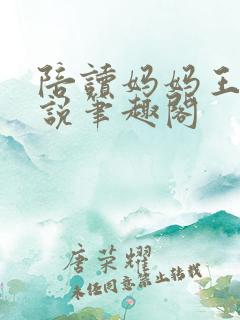 陪讀妈妈王
説筆趣閣
唐荣耀
未经同意禁止转载